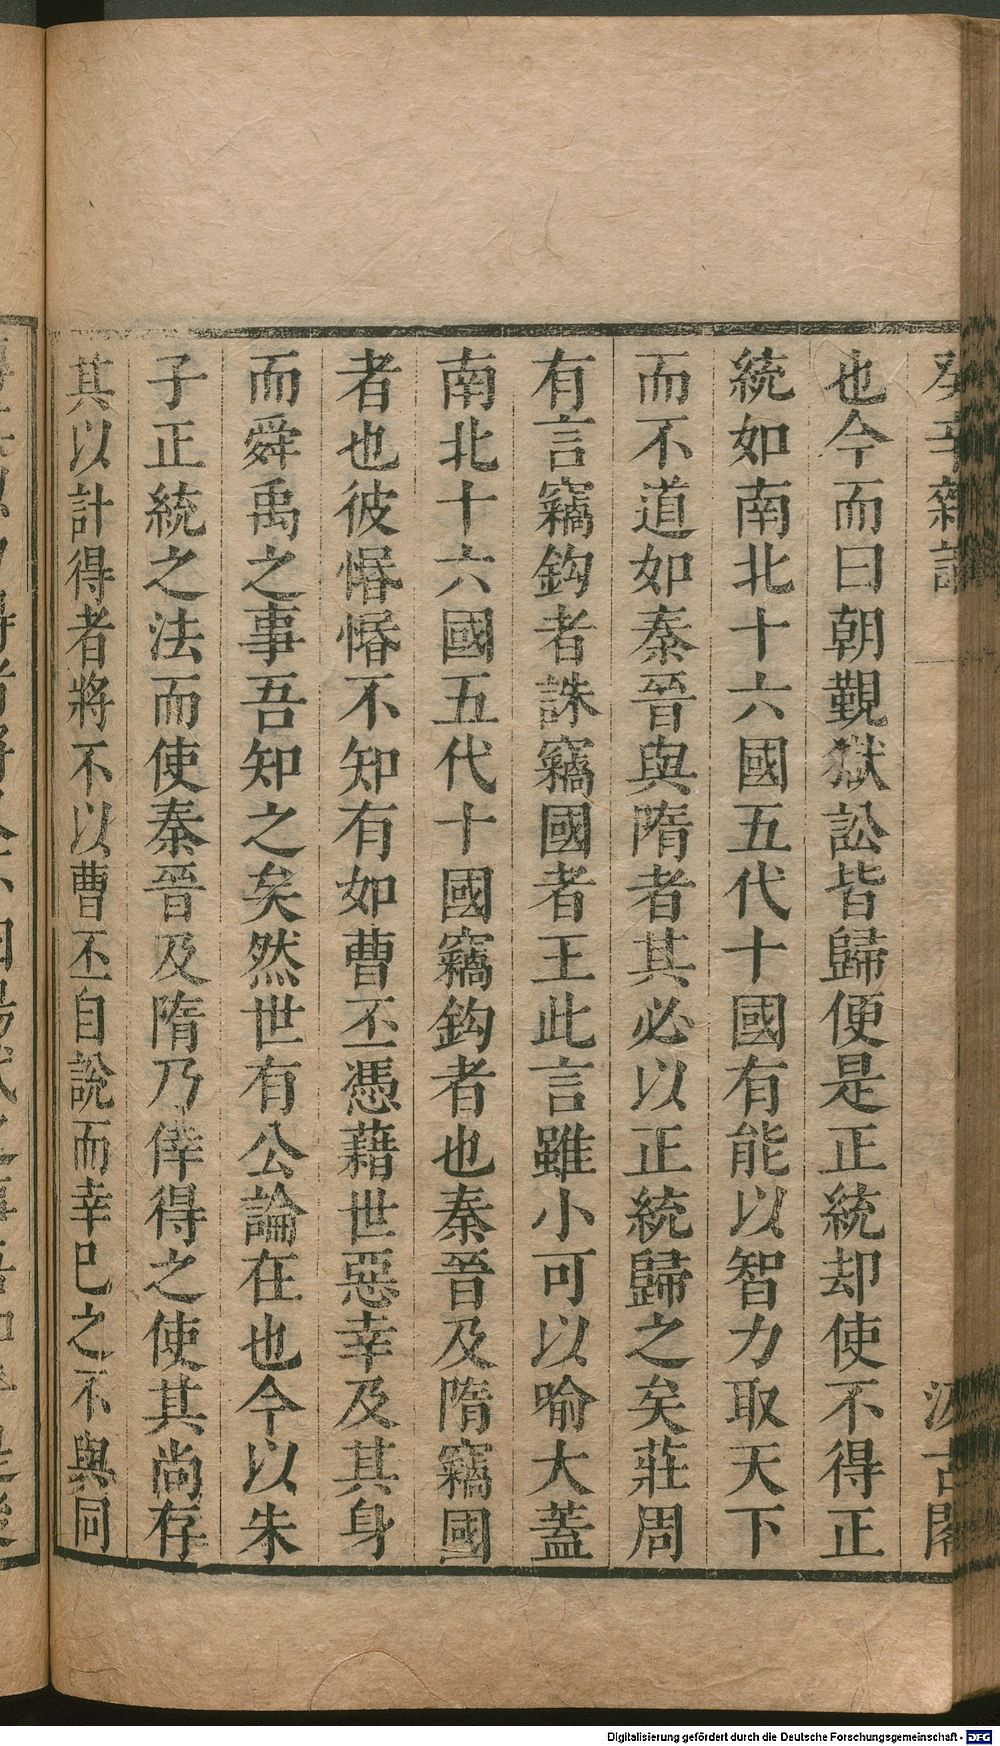 癸辛雜識
汲古閣
也今而曰朝覲獄訟皆歸便是正統却使不得正
統如南北十六國五代十國有能以智力取天下
而不道如秦晉與隋者其必以正統歸之矣莊周
有言竊鈎者誅竊國者王此言雖小可以喻大蓋
南北十六國五代十國竊鈎者也秦晉及隋竊國
者也彼惛惛不知有如曹丕憑藉世惡幸及其身
而舜禹之事吾知之矣然世有公論在也今以朱
子正統之法而使秦晉及隋乃倖得之使其尚存
其以計得者將不以曹丕自說而幸已之不與同
Digitalisierung gefördert durch die Deutsche Forschungsgemeinschaft - DFG